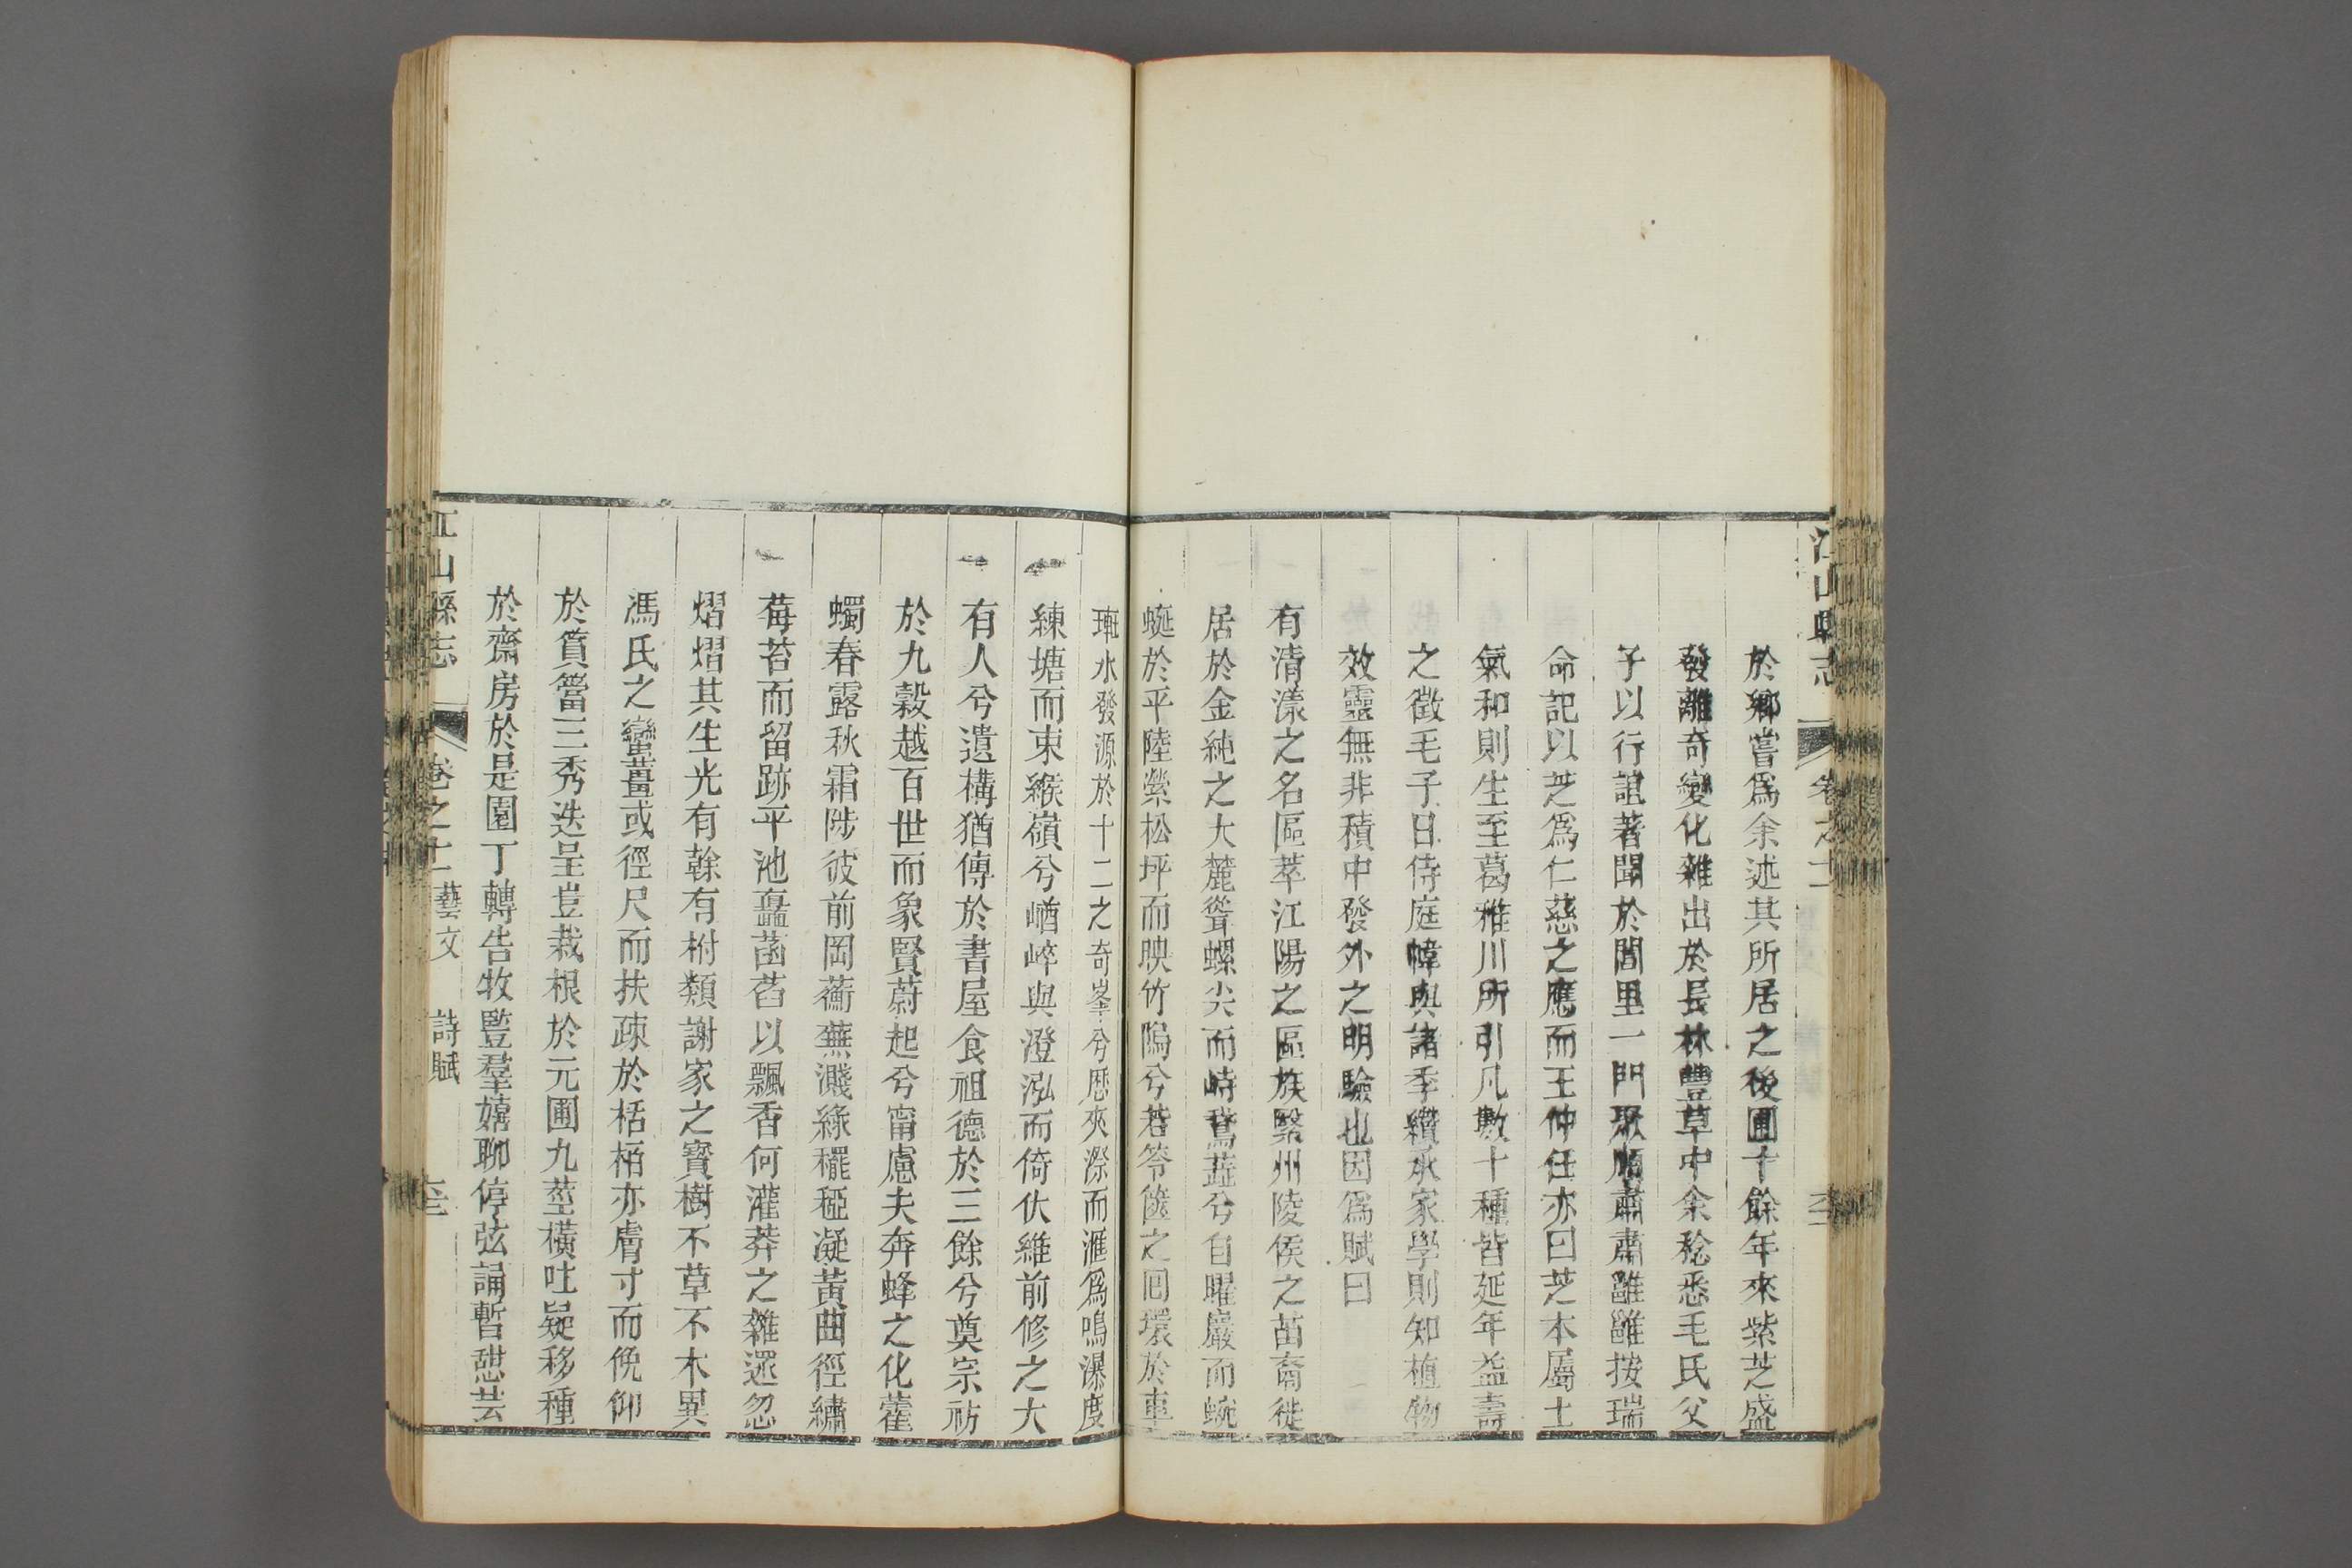 江山縣志 卷之十一
於鄉嘗爲余述其所居之後圃十餘年來紫芝盛
發離奇變化雜出於長林豐草中余稔悉毛氏父
子以行誼著聞於閭里一門聚順肅肅雝雝按瑞
命記以芝爲仁慈之應而王仲任亦曰芝本屬土
氣和則生至葛稚川所引凡數十種皆延年益壽
之徵毛子日侍庭幃與諸季纘承家學則知植物
效靈無非積中發外之明驗也因爲賦曰
有清漾之名區萃江陽之區族緊州陵侯之苗裔徙
居於金純之大麓聳螺尖而峙鵞蘁兮自曜巖而蜿
蜒於平陸縈松坪而映竹塢兮若笭篋之回環於車
璭水發源於十二之奇峯兮歷夾漈而滙爲鳴瀑度
練塘而束緱嶺兮崷崒與澄泓而倚伏維前修之大
有人兮遺構猶傳於書屋食祖德於三餘兮奠宗祊
於九穀越百世而象賢蔚起兮甯慮夫奔蜂之化藿
蠋春露秋霜陟彼前岡蘅蕪濺綠䆉稏凝黃曲徑繡
莓苔而留跡平池蘸菡萏以飄香何灌莽之雜遝忽
熠熠其生光有榦有柎類謝家之寶樹不草不木異
馮氏之蠻薑或徑尺而扶疎於栝栢亦膚寸而俛仰
於篔簹三秀迭呈豈栽根於元圃九莖橫吐疑移種
於齋房於是園丁轉告牧豎羣嬉聊停弦誦暫憇芸
江山縣志 卷之十一 藝文 詩賦 六三